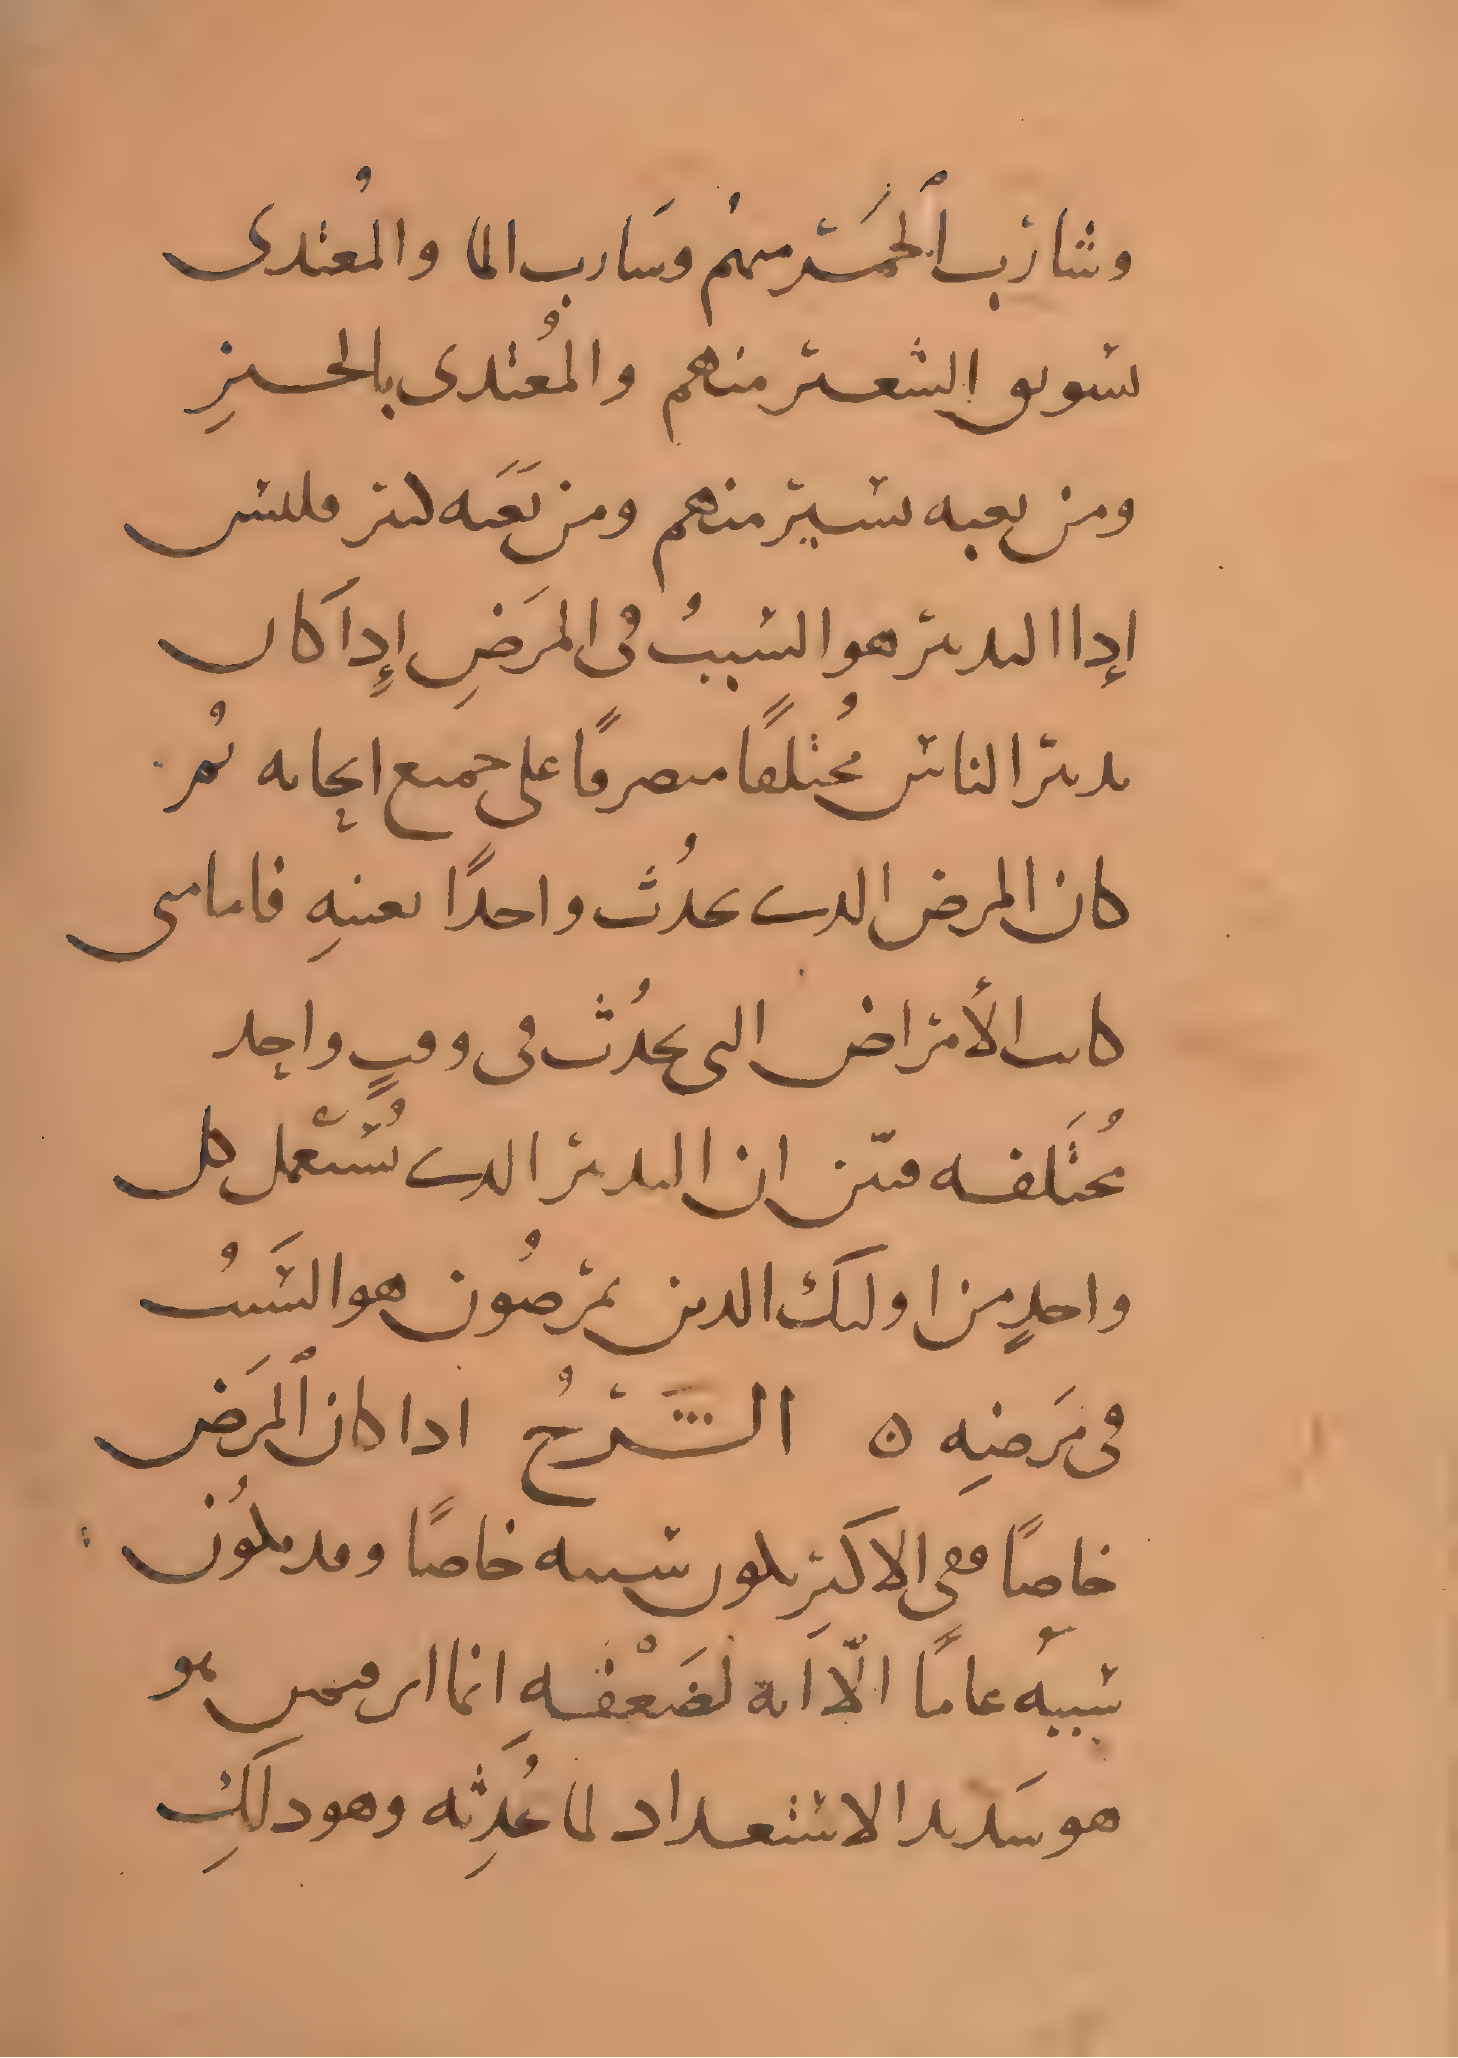 وشارب الخمر منهم وشارب الما والمغتدى
بسويق الشعير منهم والمغتدى بالخبز
ومن تعبه يسير منهم ومن تعبه كثير فليس
إذا التدبير هو السبب فى المرض إذا كان
تدبير الناس مختلفًا متصرفًا على جميع انحائه ثم
كان المرض الذي يحدث واحدًا بعينه فاما متى
كانت الأمراض التى تحدث فى وقتٍ واحد
مختلفه فبيّن ان التدبير الذي يستعمل كل
واحدٍ من اوليك الذين يمرضون هو السبب
فى مرضه ه الشرح اذا كان المرض
خاصًا ففى الاكثر يكون سببه خاصًا وقد يكون
سببه عامًا الّا انه لضعفه انما اثر فيمن هو
هو شديد الاستعداد لما يحدثه وهو ذلك